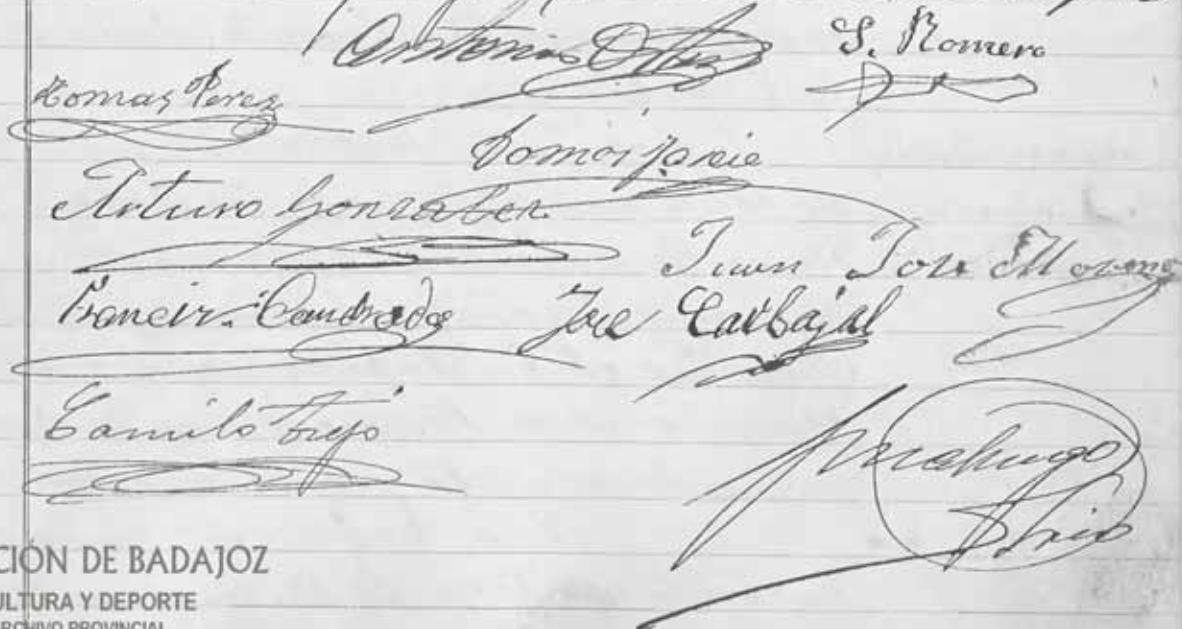 Antonio Ortiz
S. Romero
Tomas Perez
Tomás
Arturo Gonzalez
Juan Jose Moreno
Francisco Candredo
Jose Carbajal
Camilo Trejo
Srio
CIÓN DE BADAJOZ
ULTURA Y DEPORTE
ARCHIVO PROVINCIAL